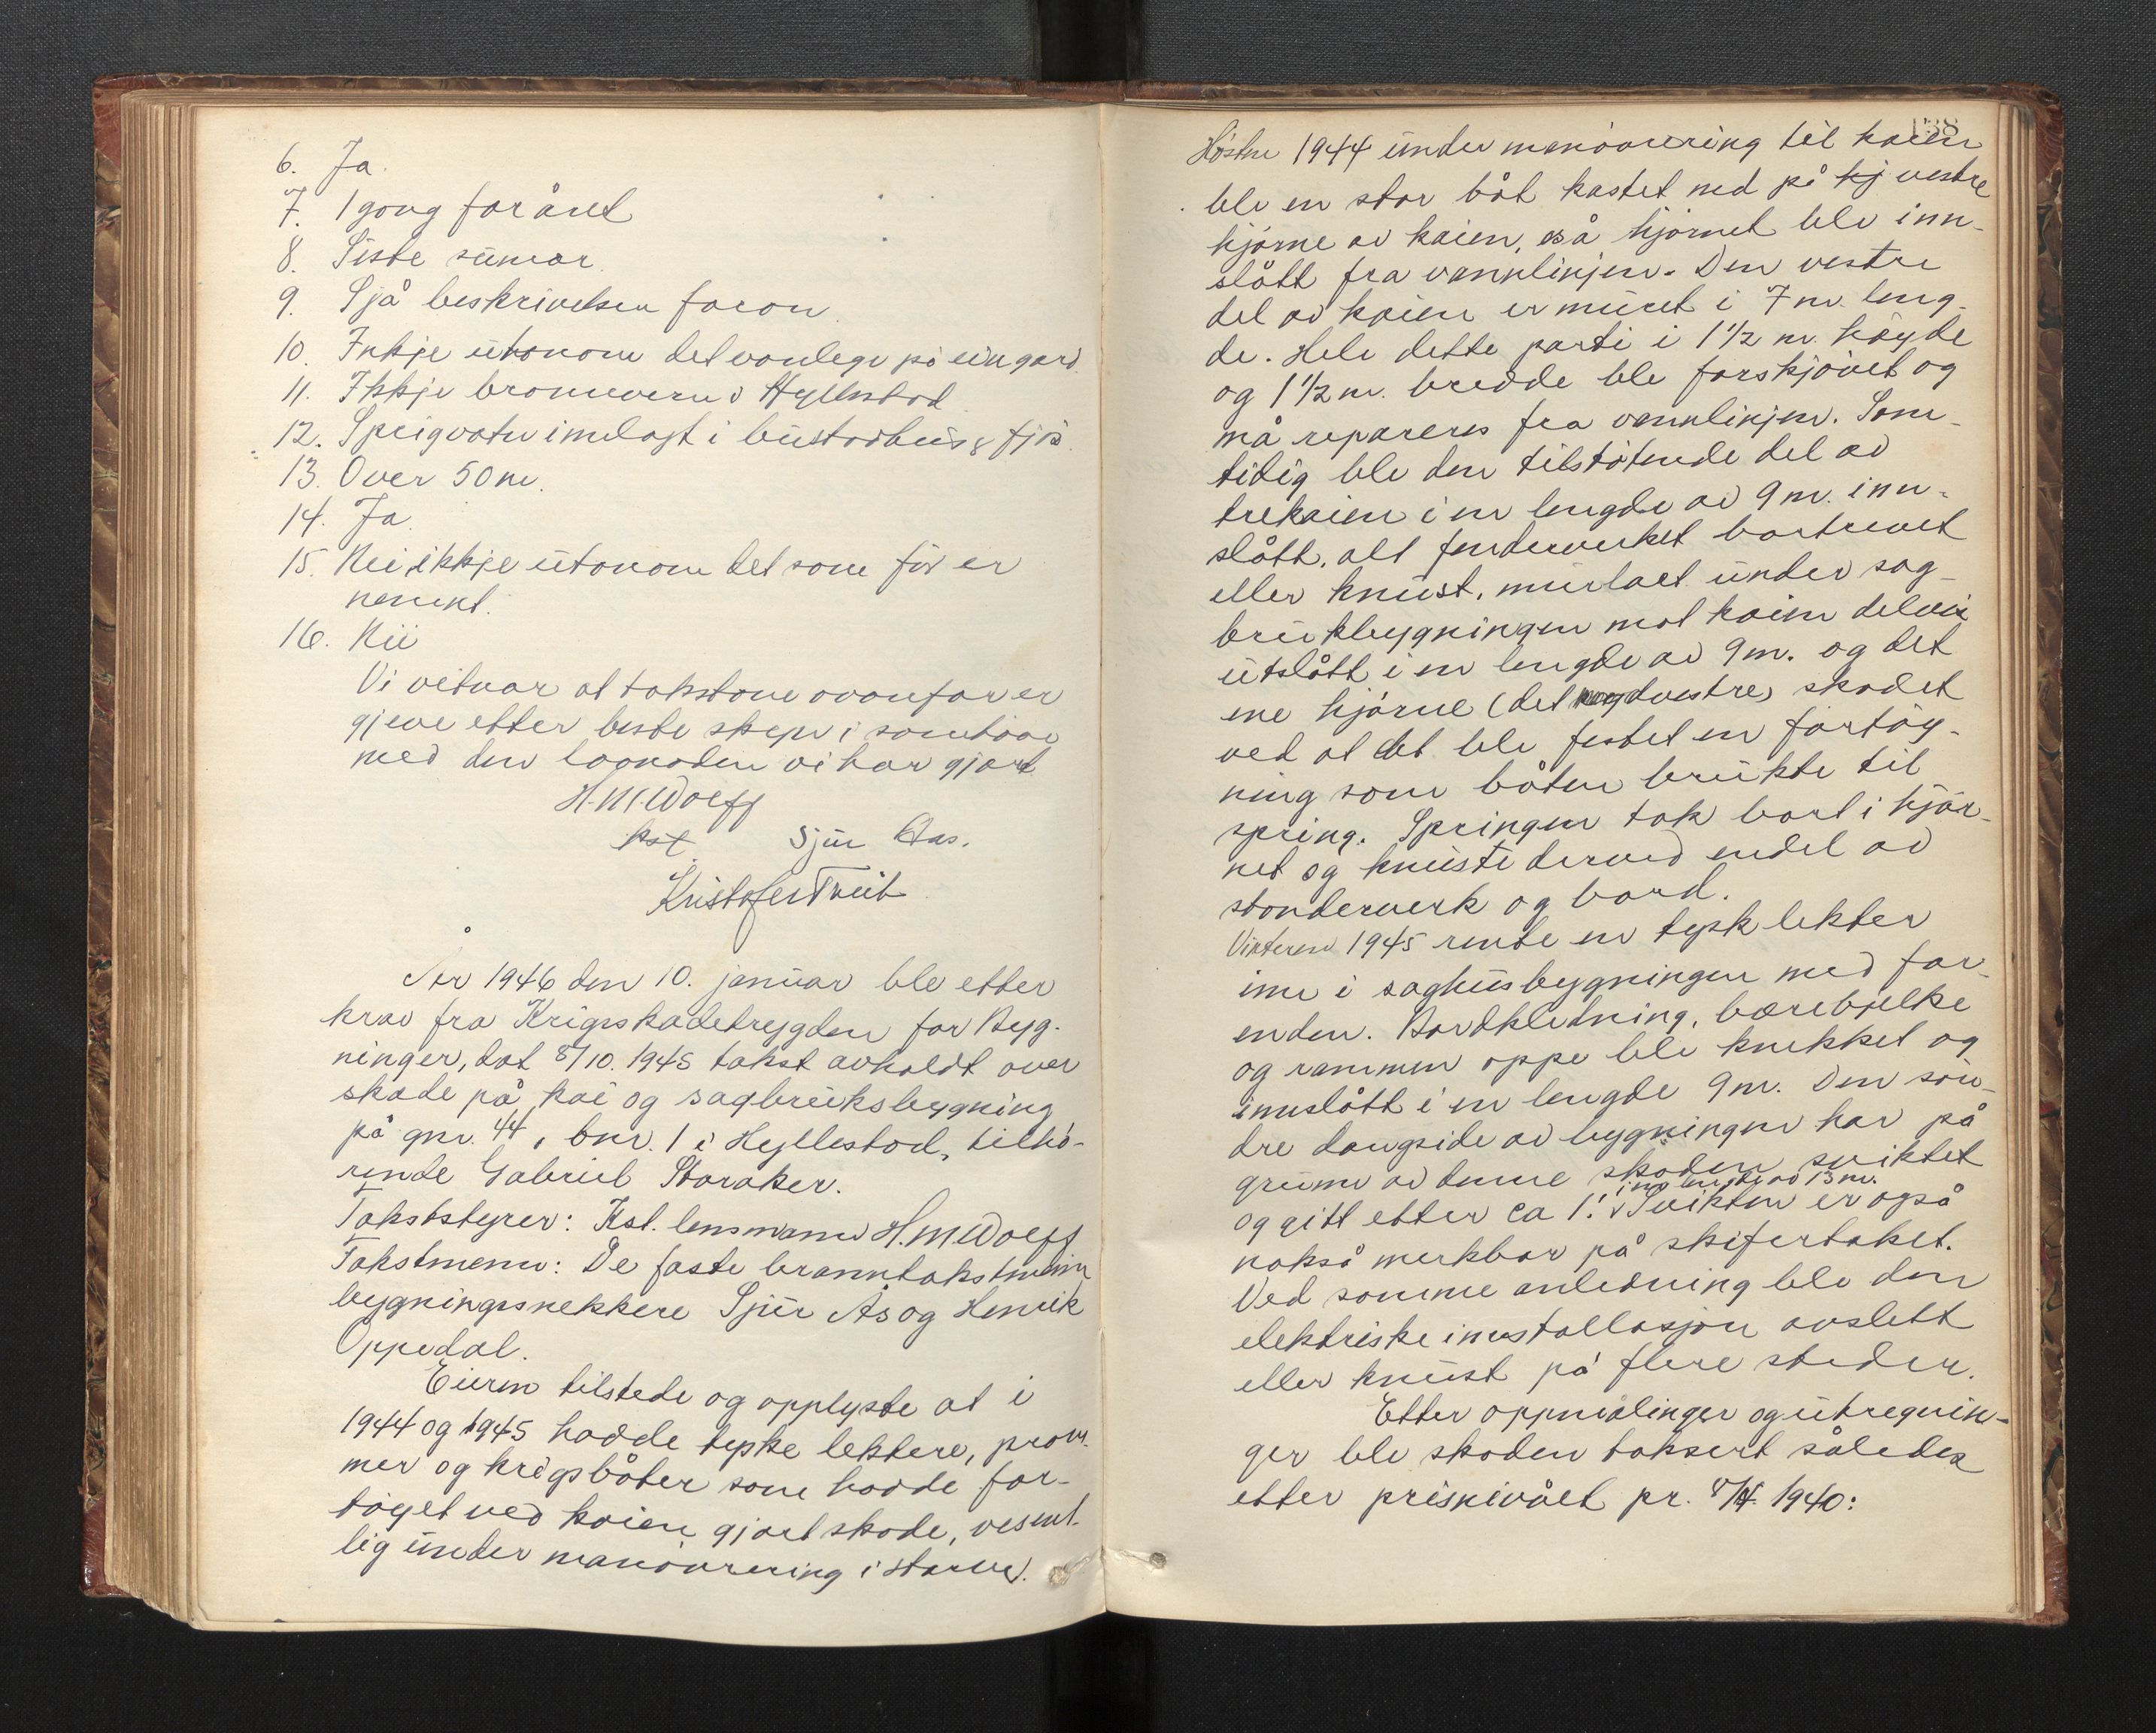 6. Ja.
7. 1 gong for året
8. Siste sumar.
9. Sjå beskrivelsen foran.
10. Inkje utanom det vanlege på ein gard.
11. Ikkje brannvern i Hyllestad
12. Springvatn innlagt i bustadhus & fjös.
13. Over 50 m.
14. Ja.
15. Nei ikkje utanom det som för er
nemnt.
16. Nei
Vi vitnar at takstane ovanfor er
gjeve etter beste skjøn i samhöve
med den lovnaden vi har gjort.
H.M.Wolff
kst. Sjur Aas.
Kristofer Tveit
År 1946 den 10. januar ble etter
krav fra Krigsskadetrygden for Byg-
ninger, dat 8/10. 1945 takst avholdt over
skade på kai og sagbruksbygning
på gnr. 44, bnr. 1 i Hyllestad, tilhö-
rende Gabriel Storaker.
Takststyrer: Kst. lensmann H.M.Wolff
Takstmenn: De faste branntakstmenn
bygningssnekkere Sjur Ås og Henrik
Oppedal.
Eieren tilstede og opplyste at i
1944 og 1945 hadde tyske lektere, pram-
mer og krigsbåter som hadde for-
töyet ved kaien gjort skade, vesent-
lig under manövrering i storm.
138
Hösten 1944 under manövrering til kaien
ble en stor båt kastet ned på hj vestre
hjörne av kaien, så hjörnet ble inn-
slått fra vannlinjen. Den vestre
del av kaien er muret i 7 m. leng-
de. Hele dette parti i 1 1/2 m. høyde
og 1 1/2 m. bredde ble forskjövet og
må repareres fra vannlinjen. Sam-
tidig ble den tilstötende del av
trekaien i en lengde av 9 m. inn-
slått, alt fenderverket bortrevet
eller knust, murlaet under sag-
brukbygningen mot kaien delvis
utslått i en lengde av 9 m. og det
ene hjörne (det nordvestre) skadet
ved at det ble festet en fortöy-
ning som båten brukte til
spring. Springen tok bort i hjör-
net og knuste derved endel av
stenderverk og bord.
Vinteren 1945 rente en tysk lekter
inn i saghusbygningen med for-
enden. Bordkledning, bærebjelke
og rammen oppe ble knekket og
innslått i en lengde 9 m. Den sön-
dre langside av bygningen har på
grunn av denne skaden sviktet
i en lengde av 13 m.
og gitt etter ca 1'. v Svikten er også
nokså merkbar på skifertaket.
Ved samme anledning ble den
elektriske installasjon avslett
eller knust på flere steder.
Etter oppmålinger og utregnin-
ger ble skaden taksert således
etter prisnivået pr. 8/4. 1940: